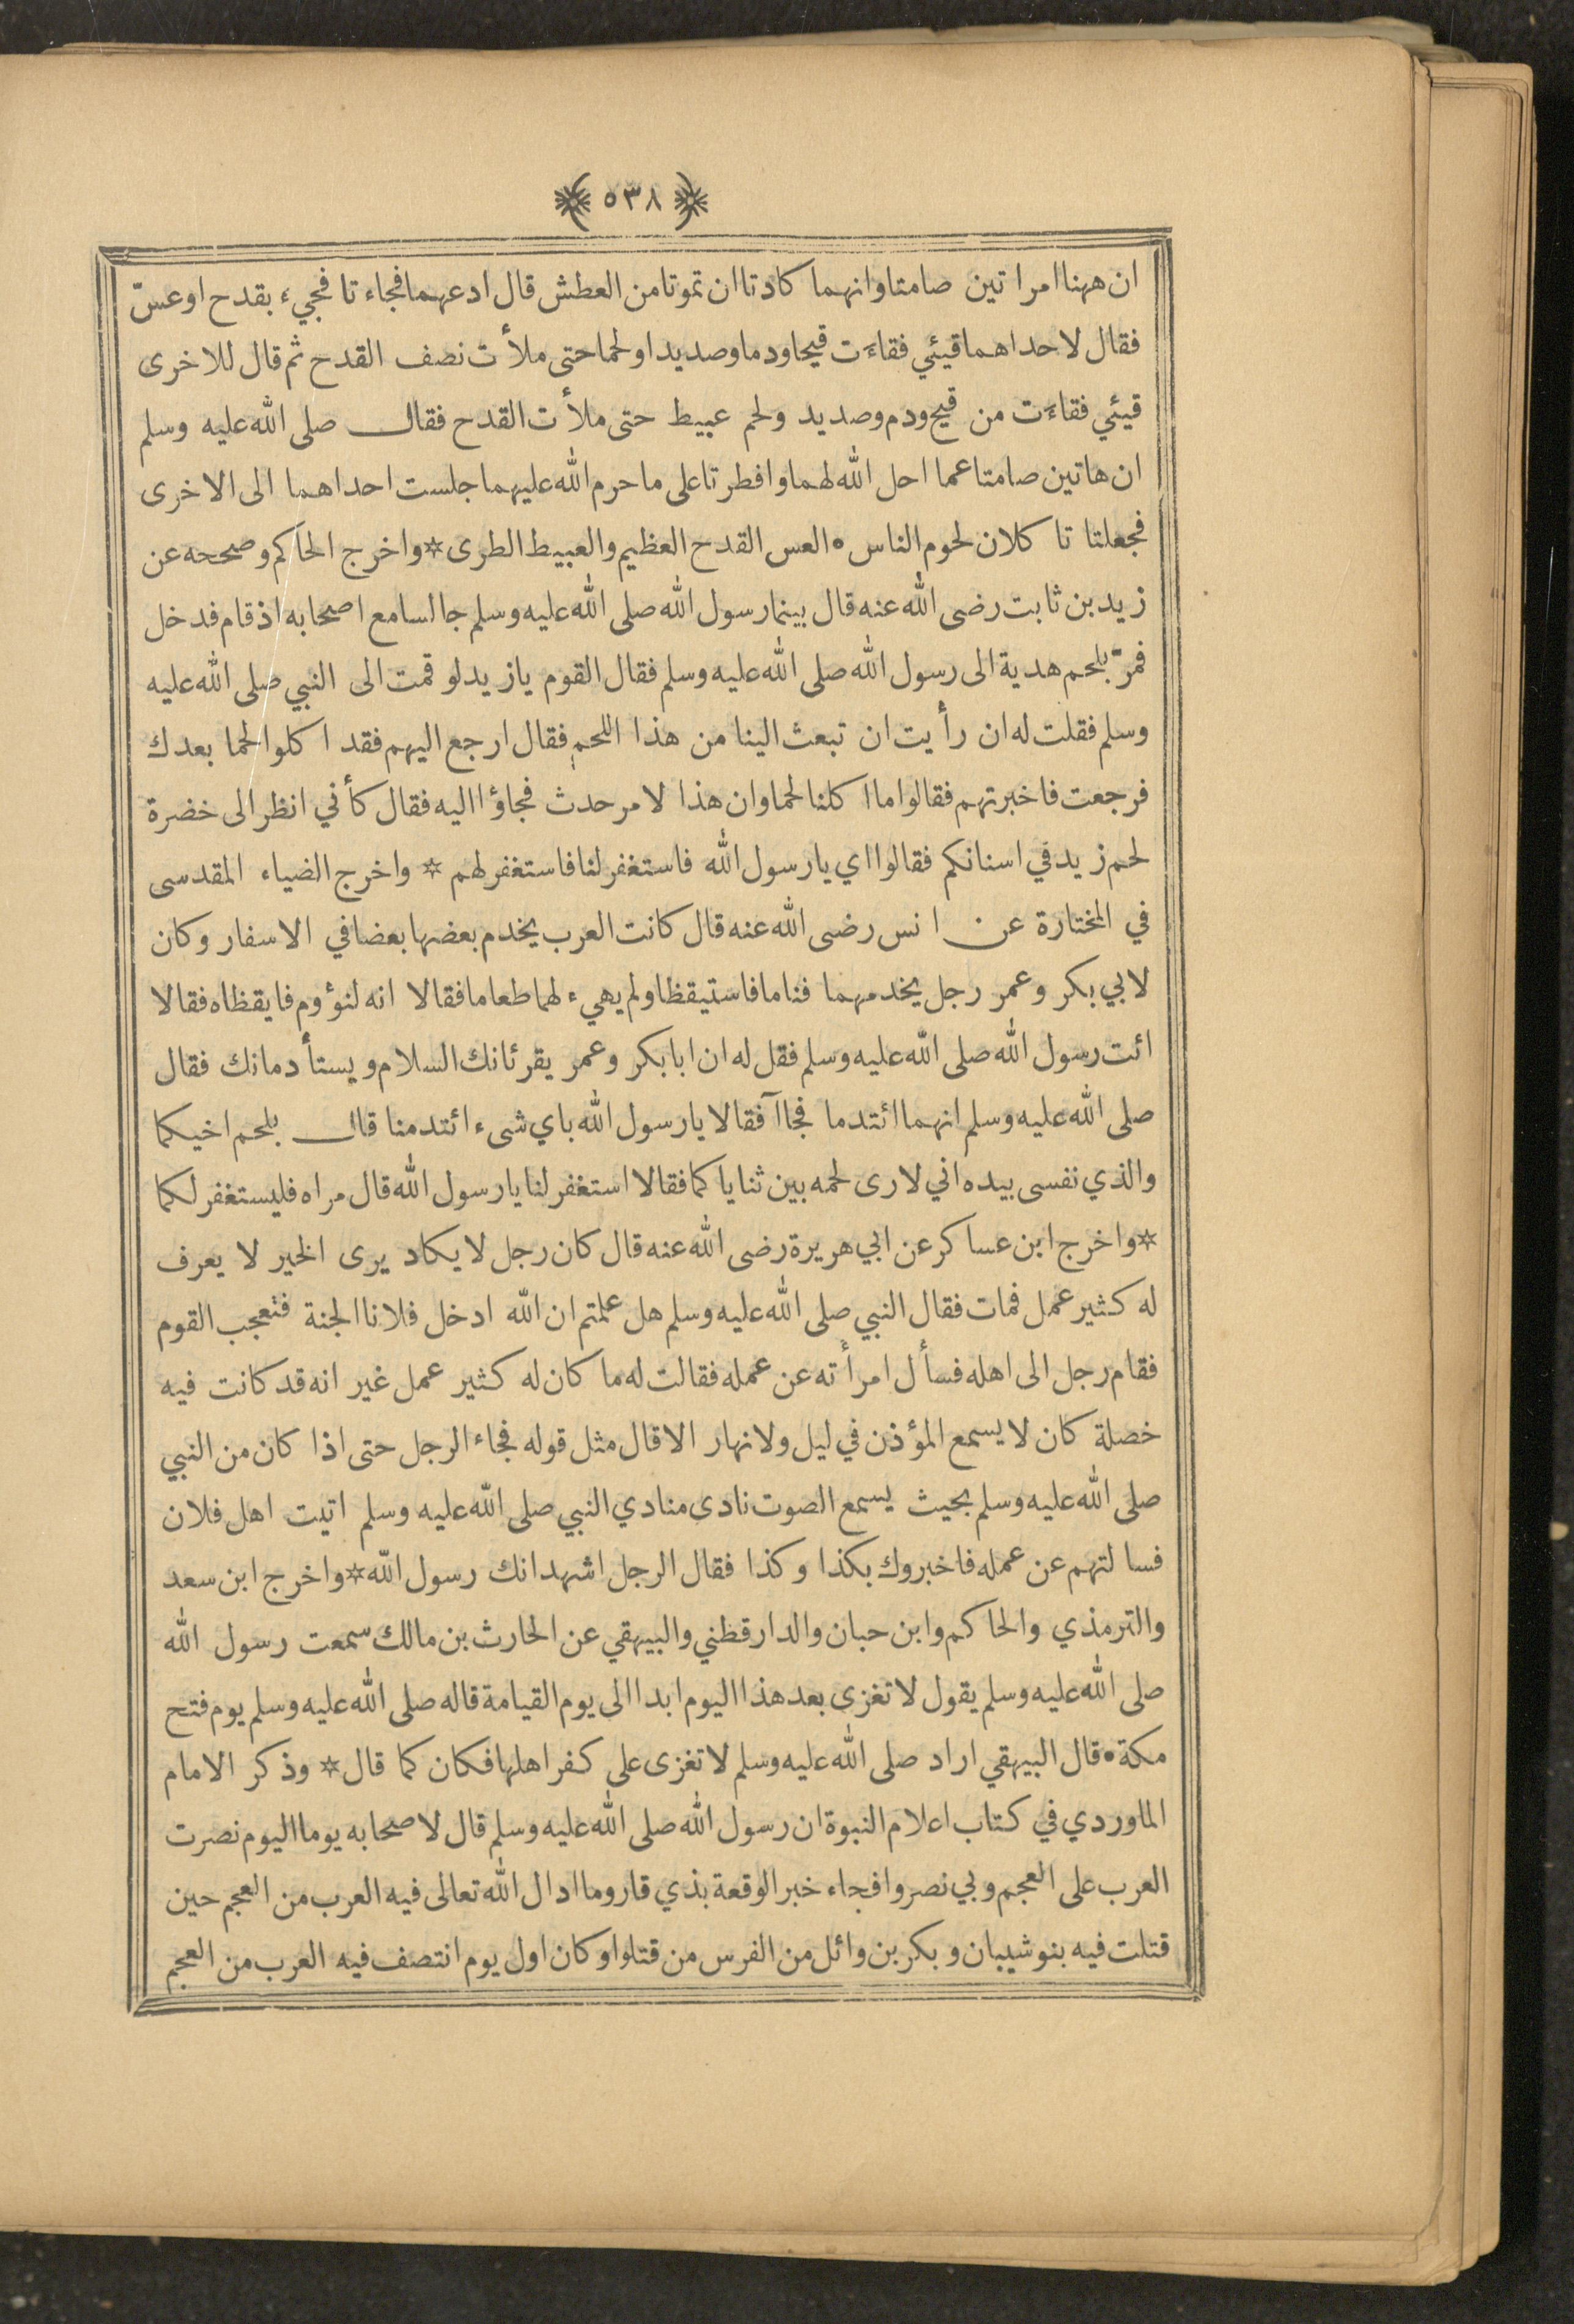 ٥٣٨
ان ههنا امراتين صامتا وانهما كادتا ان تموتا من العطش قال ادعهما فجاءتا فجيء بقدح او عسّ
فقال لاحداهما قيئي فقاءت قيحا ودما وصديدا ولحما حتى ملأت نصف القدح ثم قال للاخرى
قيئي فقاءت من قيح ودم وصديد ولحم عبيط حتى ملأت القدح فقال صلى الله عليه وسلم
ان هاتين صامتا عما احل الله لهما وافطرتا على ما حرم الله عليهما جلست احداهما الى الاخرى
فجعلتا تاكلان لحوم الناس • العس القدح العظيم والعبيط الطرى * واخرج الحاكم وصححه عن
زيد بن ثابت رضى الله عنه قال بينما رسول الله صلى الله عليه وسلم جالسا مع اصحابه اذ قام فدخل
فمرّ بلحم هدية الى رسول الله صلى الله عليه وسلم فقال القوم يازيد لو قمت الى النبي صلى الله عليه
وسلم فقلت له ان رأيت ان تبعث الينا من هذا اللحم فقال ارجع اليهم فقد اكلوا لحما بعدك
فرجعت فاخبرتهم فقالوا ما اكلنا لحما وان هذا لامر حدث فجاؤا اليه فقال كأني انظر الى خضرة
لحم زيد في اسنانكم فقالوا اي يارسول الله فاستغفر لنا فاستغفر لهم * واخرج الضياء المقدسى
في المختارة عن انس رضى الله عنه قال كانت العرب يخدم بعضها بعضا في الاسفار وكان
لابي بكر وعمر رجل يخدمهما فناما فاستيقظا ولم يهيء لهما طعاما فقالا انه لنؤوم فايقظاه فقالا
ائت رسول الله صلى الله عليه وسلم فقل له ان ابا بكر وعمر يقرئانك السلام ويستأدمانك فقال
صلى الله عليه وسلم انهما ائتدما فجاآ فقالا يارسول الله باي شىء ائتدمنا قال بلحم اخيكما
والذي نفسى بيده اني لارى لحمه بين ثناياكما فقالا استغفر لنا يارسول الله قال مراه فليستغفر لكما
* واخرج ابن عساكر عن ابي هريرة رضى الله عنه قال كان رجل لا يكاد يرى الخير لا يعرف
له كثير عمل فمات فقال النبي صلى الله عليه وسلم هل علمتم ان الله ادخل فلانا الجنة فتعجب القوم
فقام رجل الى اهله فسأل امرأته عن عمله فقالت له ما كان له كثير عمل غير انه قد كانت فيه
خصلة كان لا يسمع المؤذن في ليل ولا نهار الا قال مثل قوله فجاء الرجل حتى اذا كان من النبي
صلى الله عليه وسلم بحيث يسمع الصوت نادى منادي النبي صلى الله عليه وسلم اتيت اهل فلان
فسالتهم عن عمله فاخبروك بكذا وكذا فقال الرجل اشهد انك رسول الله * واخرج ابن سعد
والترمذي والحاكم وابن حبان والدارقطني والبيهقي عن الحارث بن مالك سمعت رسول الله
صلى الله عليه وسلم يقول لا تغزى بعد هذا اليوم ابدا الى يوم القيامة قاله صلى الله عليه وسلم يوم فتح
مكة • قال البيهقي اراد صلى الله عليه وسلم لا تغزى على كفر اهلها فكان كما قال * وذكر الامام
الماوردي في كتاب اعلام النبوة ان رسول الله صلى الله عليه وسلم قال لاصحابه يوما اليوم نصرت
العرب على العجم وبي نصروا فجاء خبر الوقعة بذي قار وما ادال الله تعالى فيه العرب من العجم حين
قتلت فيه بنو شيبان وبكر بن وائل من الفرس من قتلوا وكان اول يوم انتصف فيه العرب من العجم